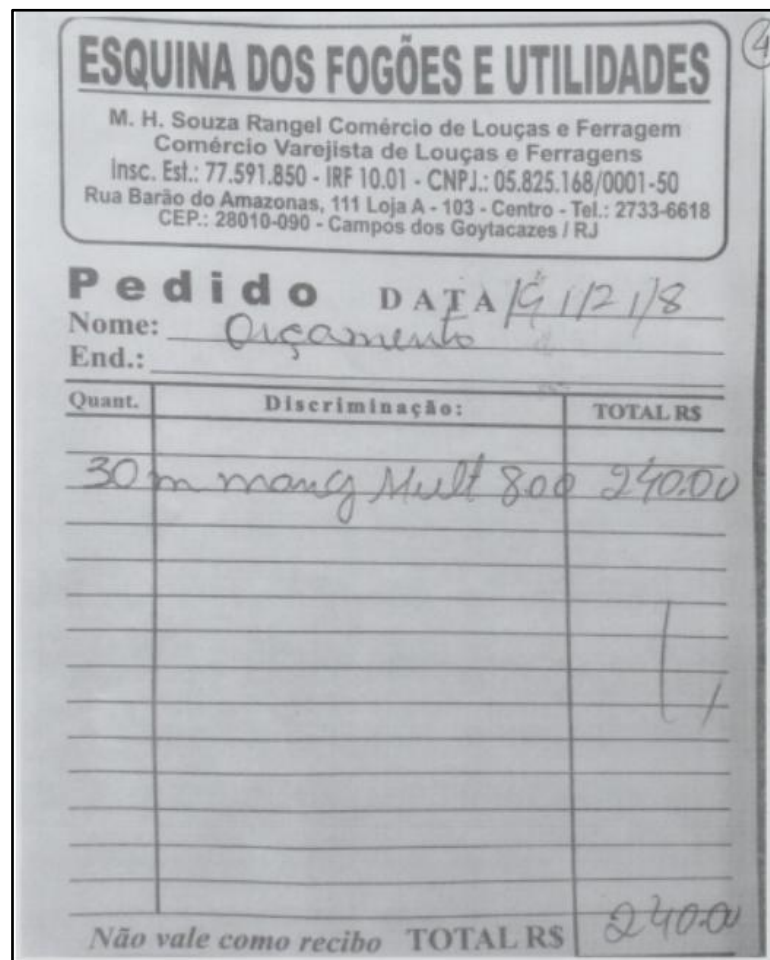 4
ESQUINA DOS FOGÕES E UTILIDADES
M. H. Souza Rangel Comércio de Louças e Ferragem
Comércio Varejista de Louças e Ferragens
Insc. Est.: 77.591.850 - IRF 10.01 - CNPJ.: 05.825.168/0001-50
Rua Barão do Amazonas, 111 Loja A - 103 - Centro - Tel.: 2733-6618
CEP.: 28010-090 - Campos dos Goytacazes / RJ
Pedido DATA 19/12/18
Nome: Orçamento
End.:
Quant. Discriminação: TOTAL R$
30 m mang Mult 8.00 240.00
Não vale como recibo TOTAL R$ 240.00